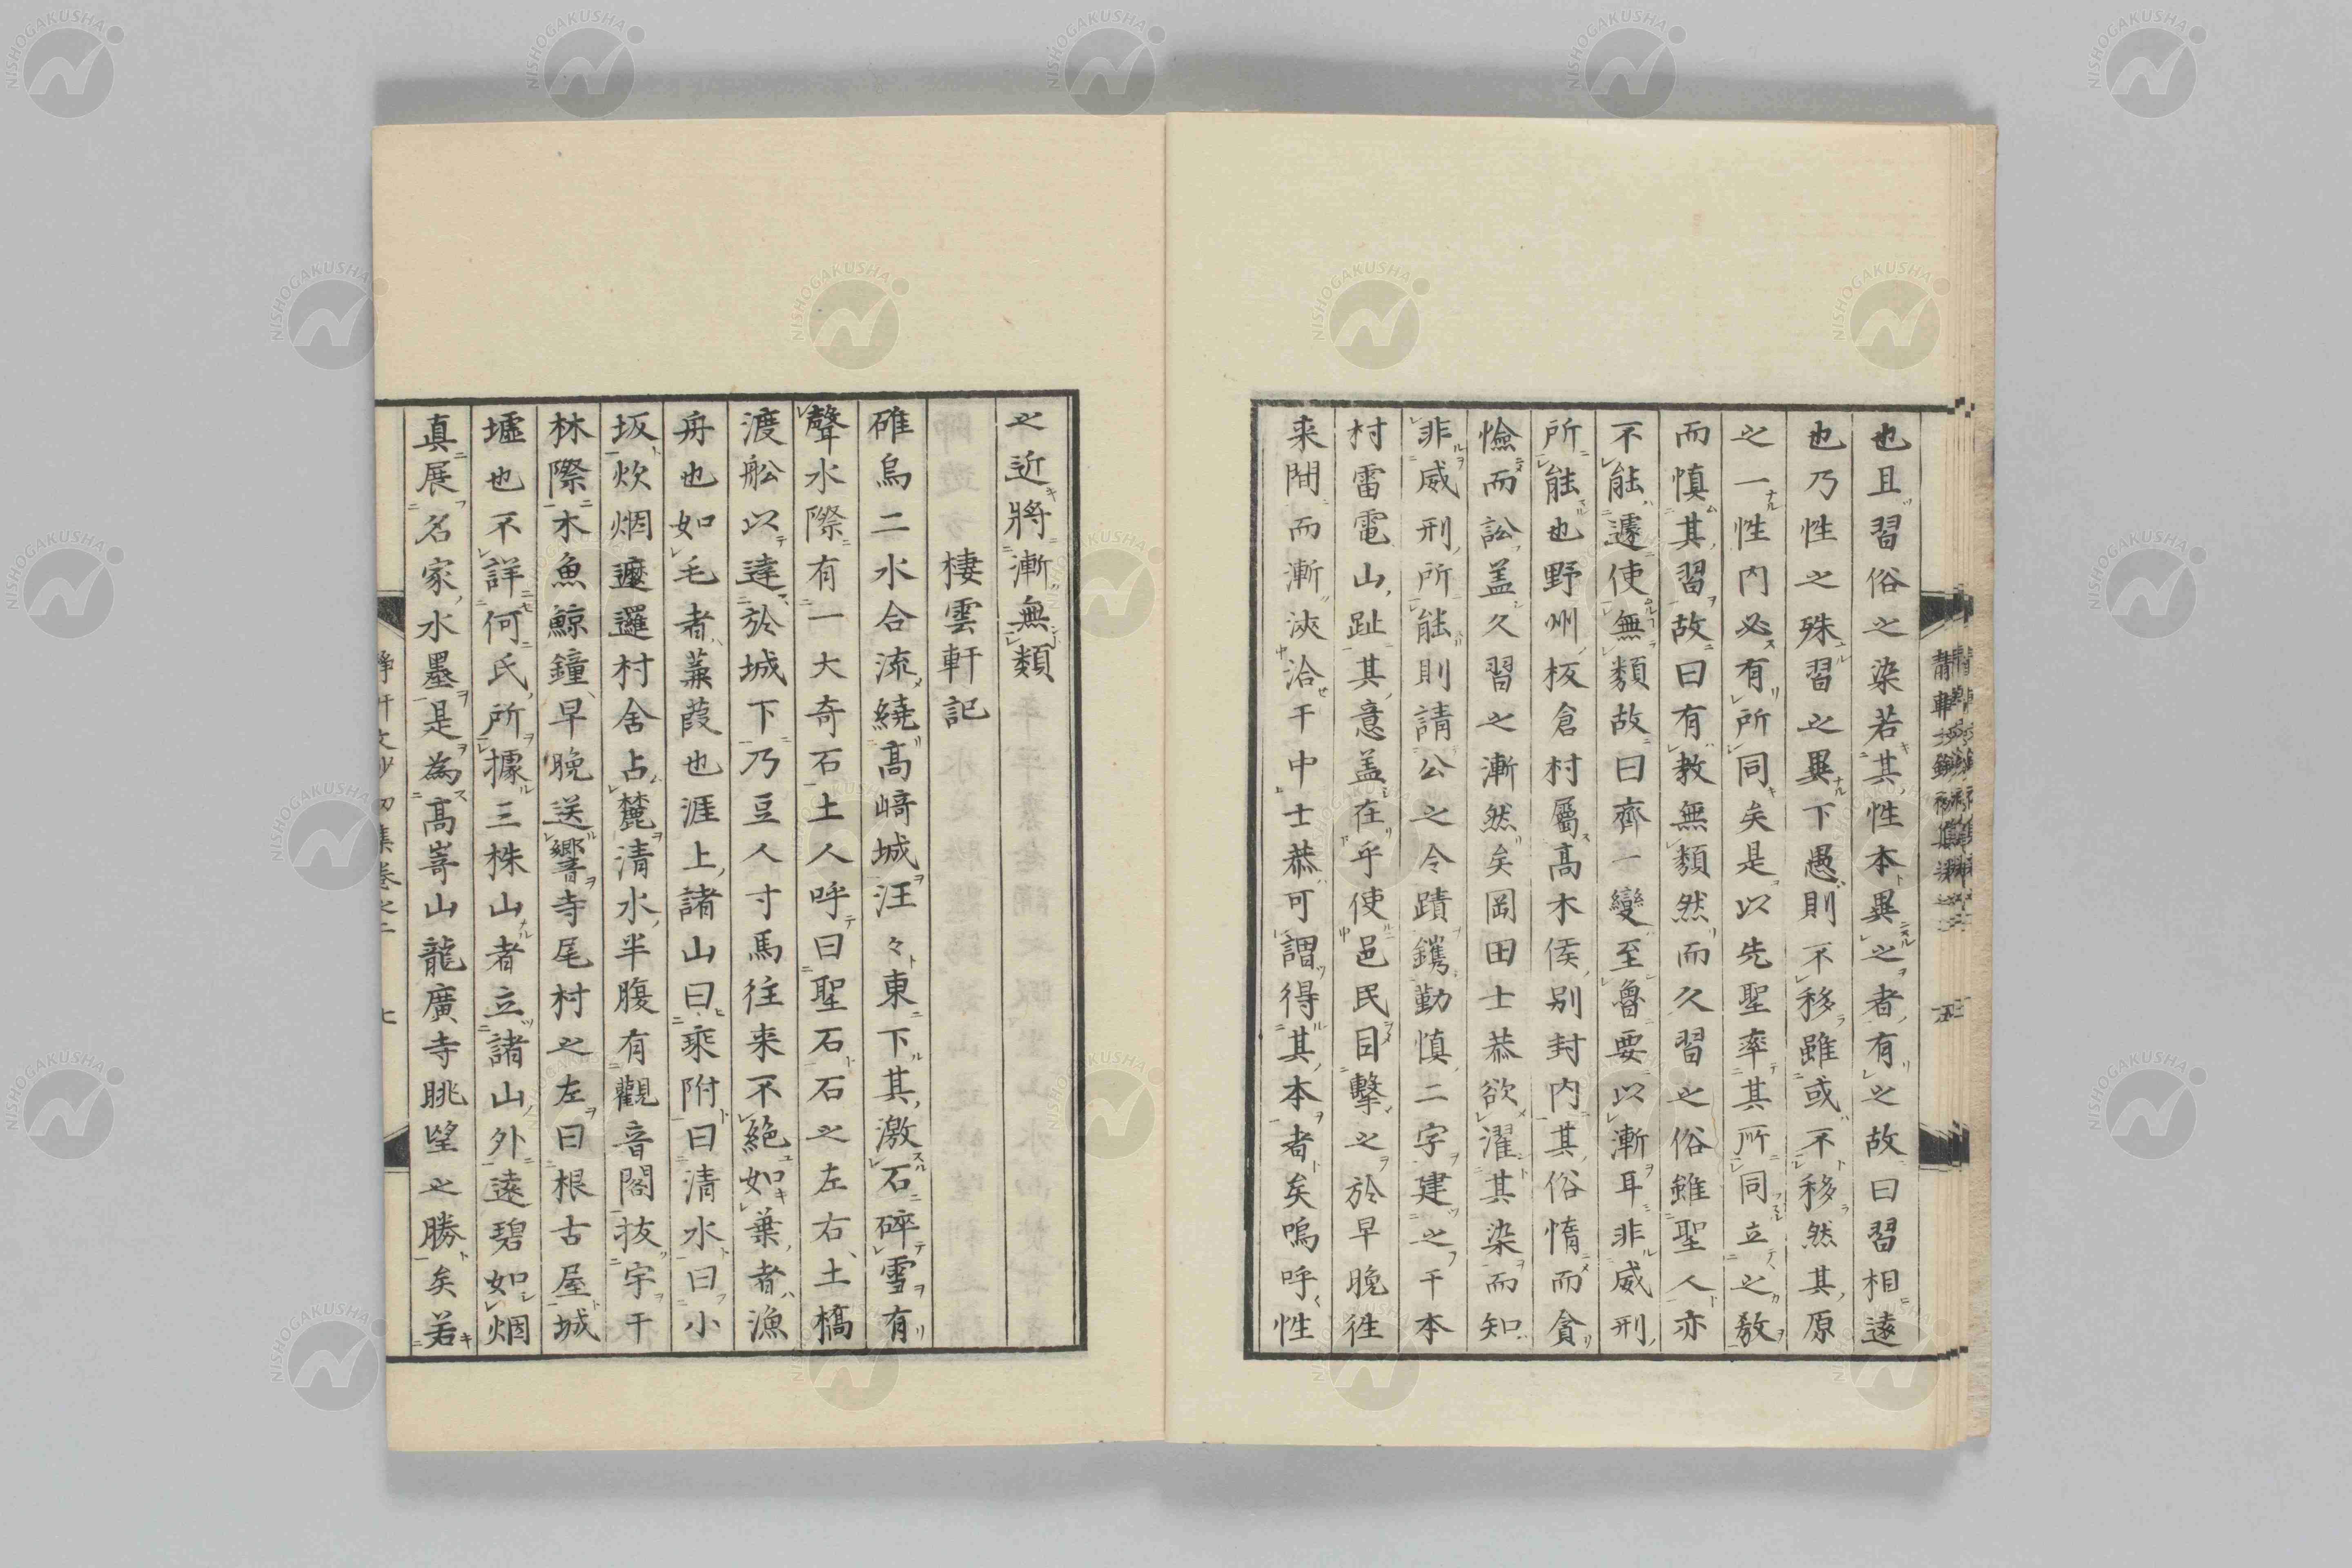 也且習俗之染若其性本異之者有之故曰習相遠
也乃性之殊習之異下愚則不移雖或不移然其原
之一性内必有所同矣是以先聖率其所同立之教
而慎其習故曰有教無類然而久習之俗雖聖人亦
不能遽使無類故曰齊一變至魯要以漸耳非威刑
所能也野州板倉村屬高木侯別封内其俗惰而貪
憸而訟盖久習之漸然矣岡田士恭欲濯其染而知
非威刑所能則請公之令蹟鐫勤慎二字建之干本
村雷電山趾其意盖在乎使邑民目擊之於早晚徃
来間而漸浹洽干中士恭可謂得其本者矣嗚呼性
之近將漸無類
棲雲軒記
碓烏二水合流繞高﨑城汪々東下其激石碎雪有
聲水際有一大奇石土人呼曰聖石石之左右土橋
渡舩以達於城下乃豆人寸馬往来不絶如葉者漁
舟也如毛者蒹葭也涯上諸山曰乘附曰清水曰小
坂炊烟邐村舍占麓清水半腹有觀音閣抜宇干
林際木魚鯨鐘早晚送響寺尾村之左曰根古屋城
墟也不詳何氏所據三株山者立諸山外遠碧如烟
真展名家水墨是為高嵜山龍廣寺眺望之勝矣若